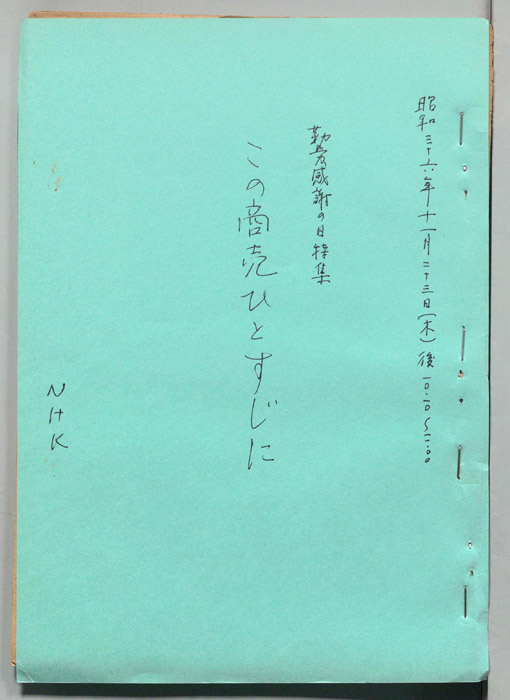 昭和三十六年十一月二十三日(木)後一〇.一〇〜一一.〇〇
勤労感謝の日特集
この商売ひとすじに
NHK